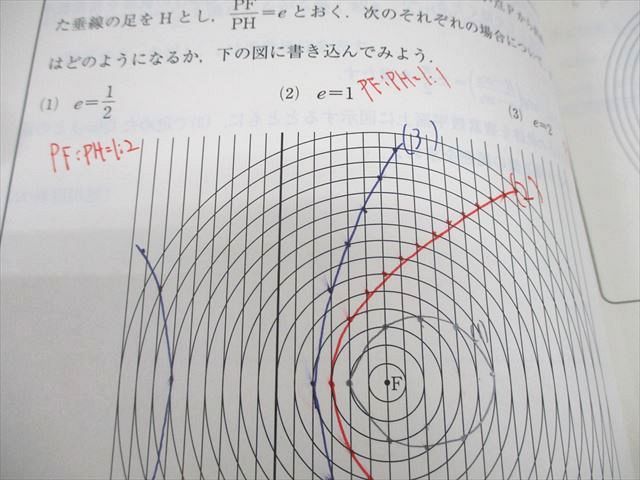 点Pから
た垂線の足をHとし, PF/PH=eとおく. 次のそれぞれの場合について,
はどのようになるか, 下の図に書き込んでみよう.
(1) e=1/2
(2) e=1
PF:PH=1:1
(3) e=2
PF:PH=1:2
(3)
(2)
(1)
F